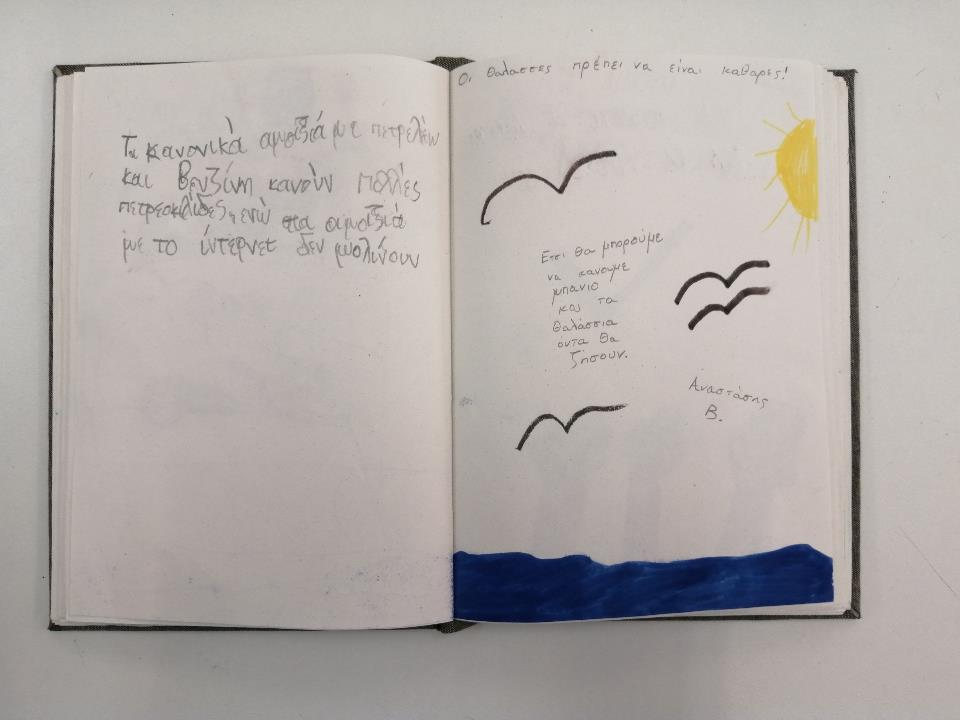 Τα κανονικά αμοξιά με πετρελέω
και βενζίνη κανούν πολλές
πετρεσκιλίδες, ενώ στα αμοξιά
με το ίντερνετ δεν μολίνουν
Οι θαλασσες πρέπει να είναι καθαρες!
Ετσι θα μπορούμε
να κανουμε
μπανιο
και τα
θαλάσσια
όντα θα
ζήσουν.
Αναστάσης
Β.